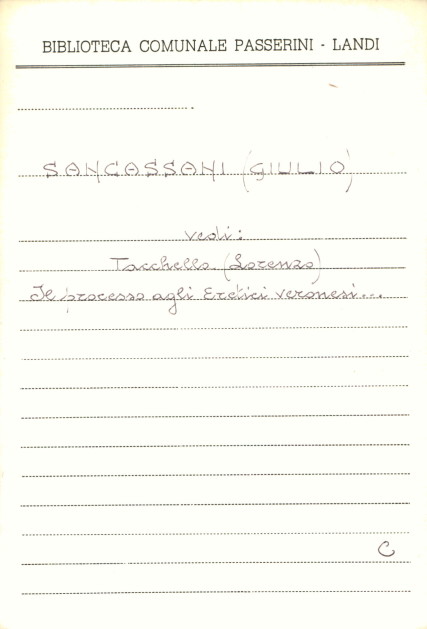 BIBLIOTECA COMUNALE PASSERINI - LANDI
SANCASSANI (GIULIO)
vedi:
Tacchella (Lorenzo)
Il processo agli Eretici veronesi...
C